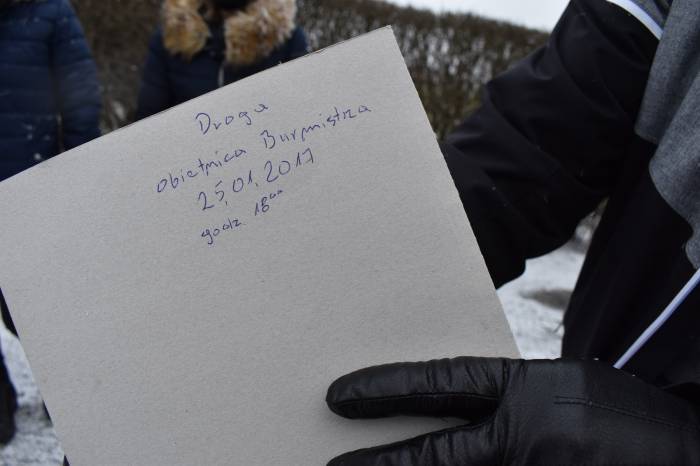 Droga
obietnica Burmistrza
25,01,2017
godz. 18ºº